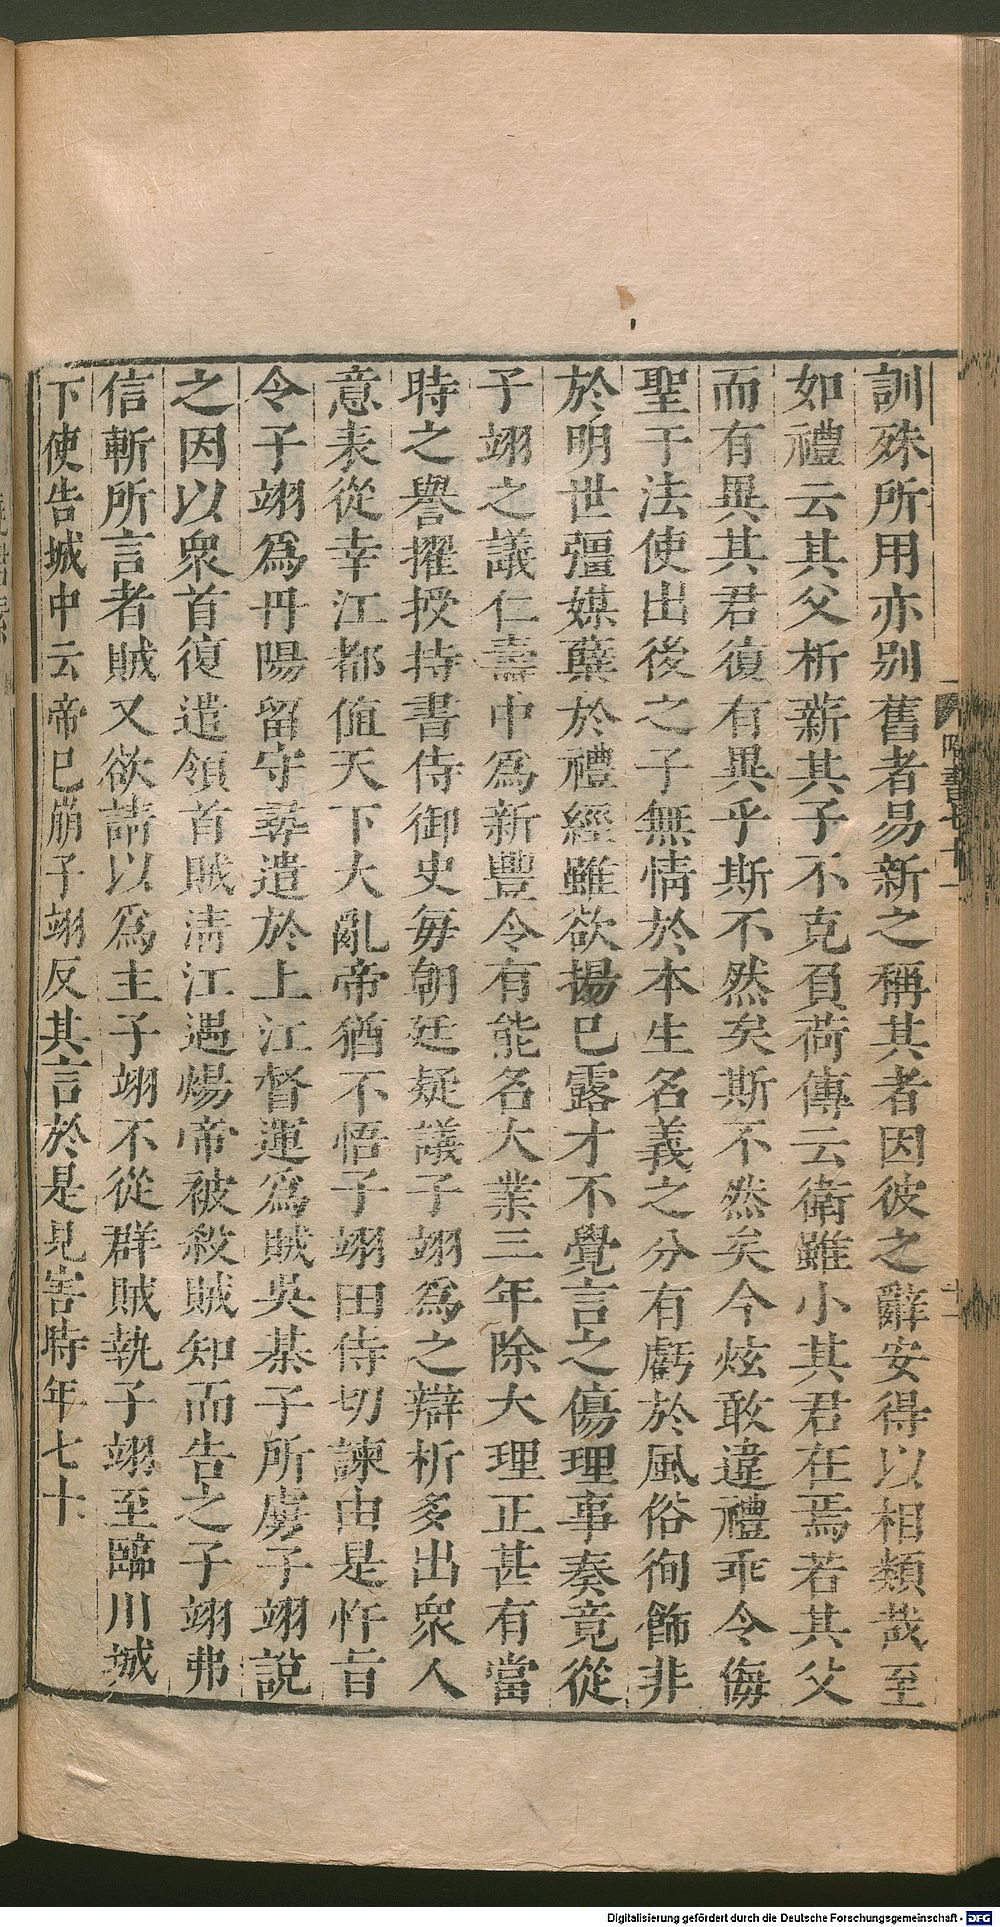 訓殊所用亦别舊者易新之稱其者因彼之辭安得以相類哉至
如禮云其父析薪其子不克負荷傳云衛雖小其君在焉若其父
而有異其君復有異乎斯不然矣斯不然矣今炫敢違禮乖令侮
聖干法使出後之子無情於本生名義之分有虧於風俗徇飾非
於明世彊媒蘖於禮經雖欲揚已露才不覺言之傷理事奏竟從
子翊之議仁壽中爲新豐令有能名大業三年除大理正甚有當
時之譽擢授持書侍御史毎朝廷疑議子翊爲之辯析多出衆人
意表從幸江都值天下大亂帝猶不悟子翊田侍切諫由是忤旨
令子翊爲丹陽留守尋遣於上江督運爲賊吳棊子所虜子翊說
之因以衆首復遣領首賊清江遇煬帝被殺賊知而告之子翊弗
信斬所言者賊又欲請以爲主子翊不從群賊執子翊至臨川城
下使告城中云帝已崩子翊反其言於是見害時年七十
隋書七十一
十一
Digitalisierung gefördert durch die Deutsche Forschungsgemeinschaft - DFG